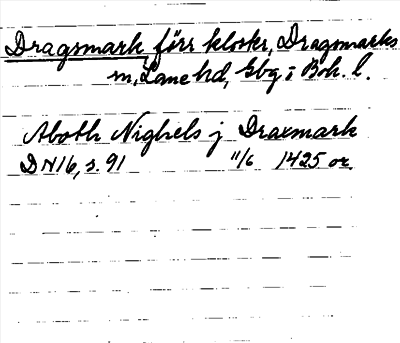 Dragsmark, förr kloster, Dragsmarks
sn, Lane hd, Gbg o Boh. l.
Aboth Nighels j Draxmark
DN 16, s. 91 11/6 1425 or.